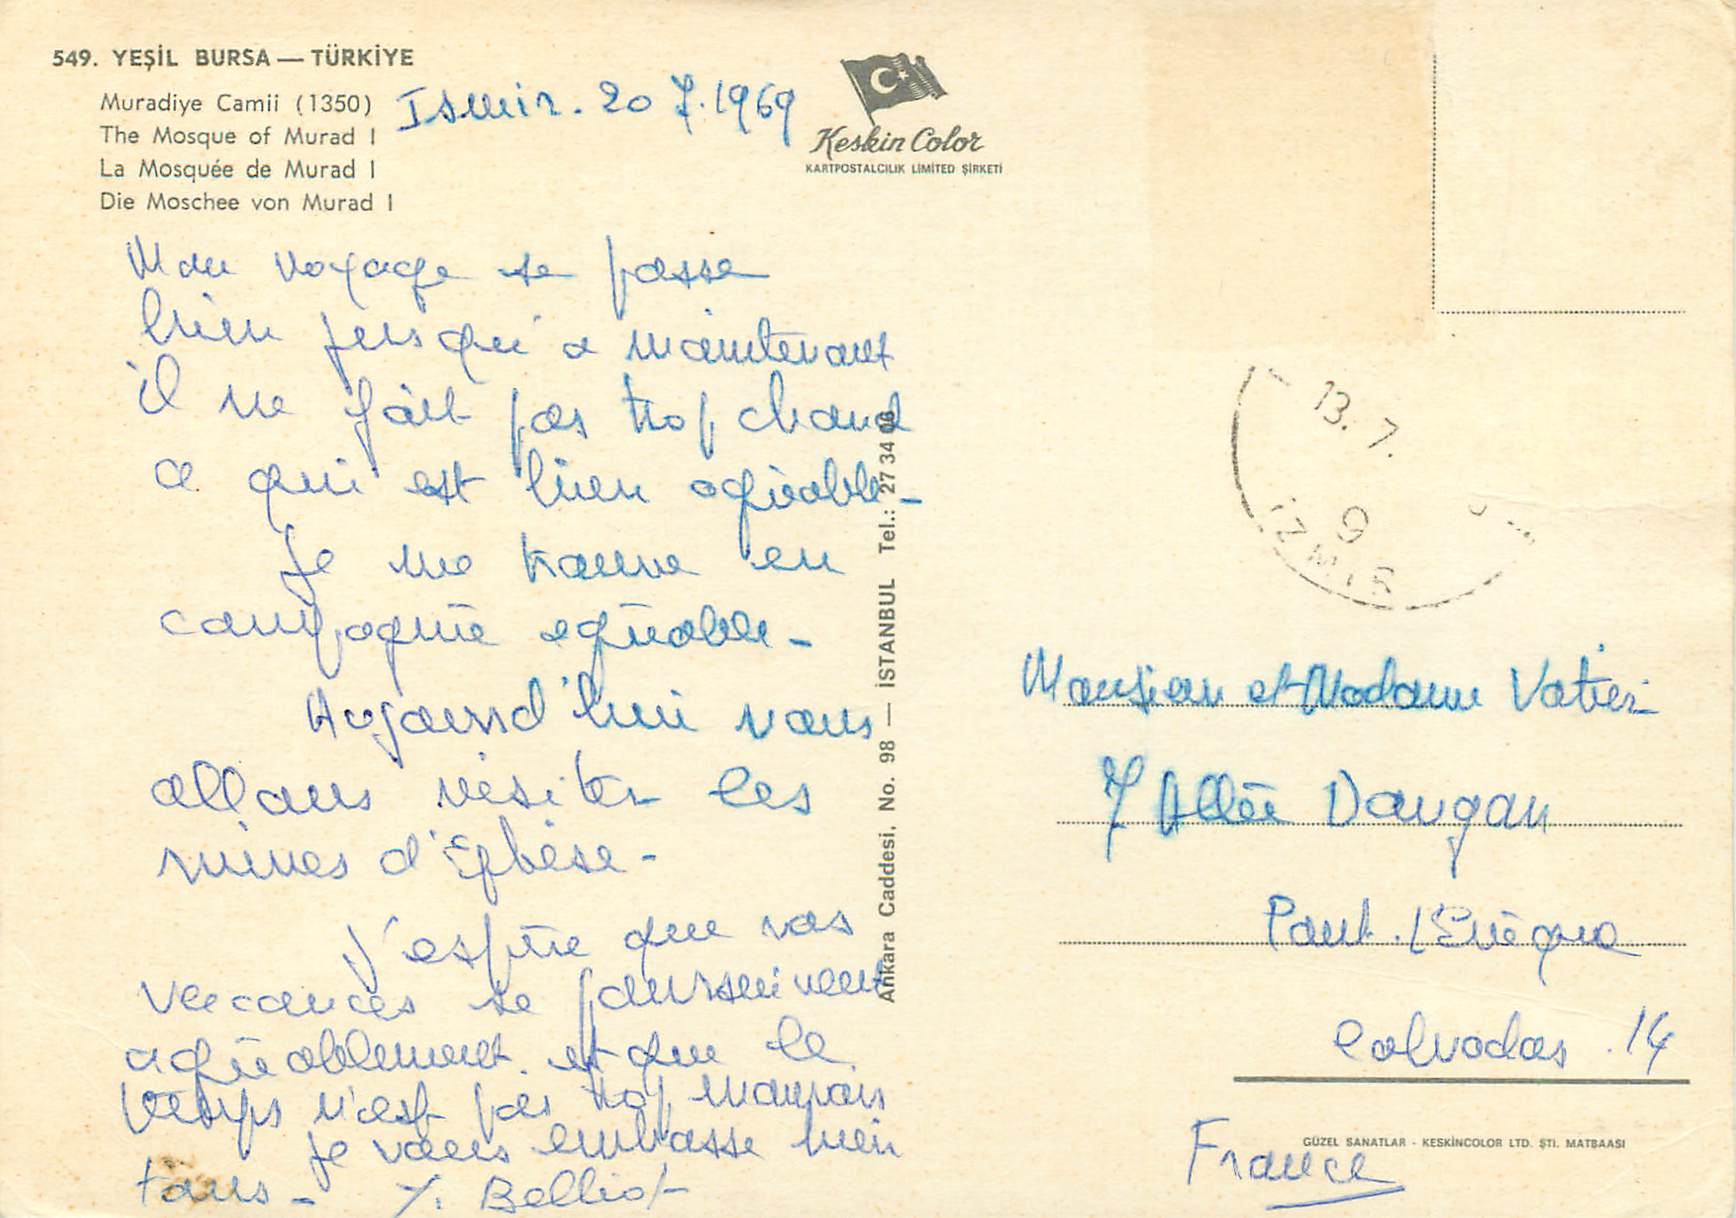 549. YEŞİL BURSA — TÜRKİYE
Muradiye Camii (1350)
The Mosque of Murad I
La Mosquée de Murad I
Die Moschee von Murad I
Ismir. 20 7. 1969
Keskin Color
KARTPOSTALCILIK LİMİTED ŞİRKETİ
Mon voyage se passe
bien jusqu'à maintenant
il ne fait pas trop chaud
ce qui est bien agréable -
Je me trouve en
compagnie agréable -
Aujourd'hui nous
allons visiter les
ruines d'Ephèse -
J'espère que vos
vacances se poursuivent
agréablement et que le
temps n'est pas trop mauvais
je vous embrasse bien
tous - Y. Belliot
Ankara Caddesi, No. 98 — İSTANBUL Tel.: 27 34 06
13. 7.
9
İZMİR
Monsieur et Madame Vatier
7 Allée Daugan
Pont. l'Evèque
Calvados. 14
France
GÜZEL SANATLAR - KESKİNCOLOR LTD. ŞTİ. MATBAASI